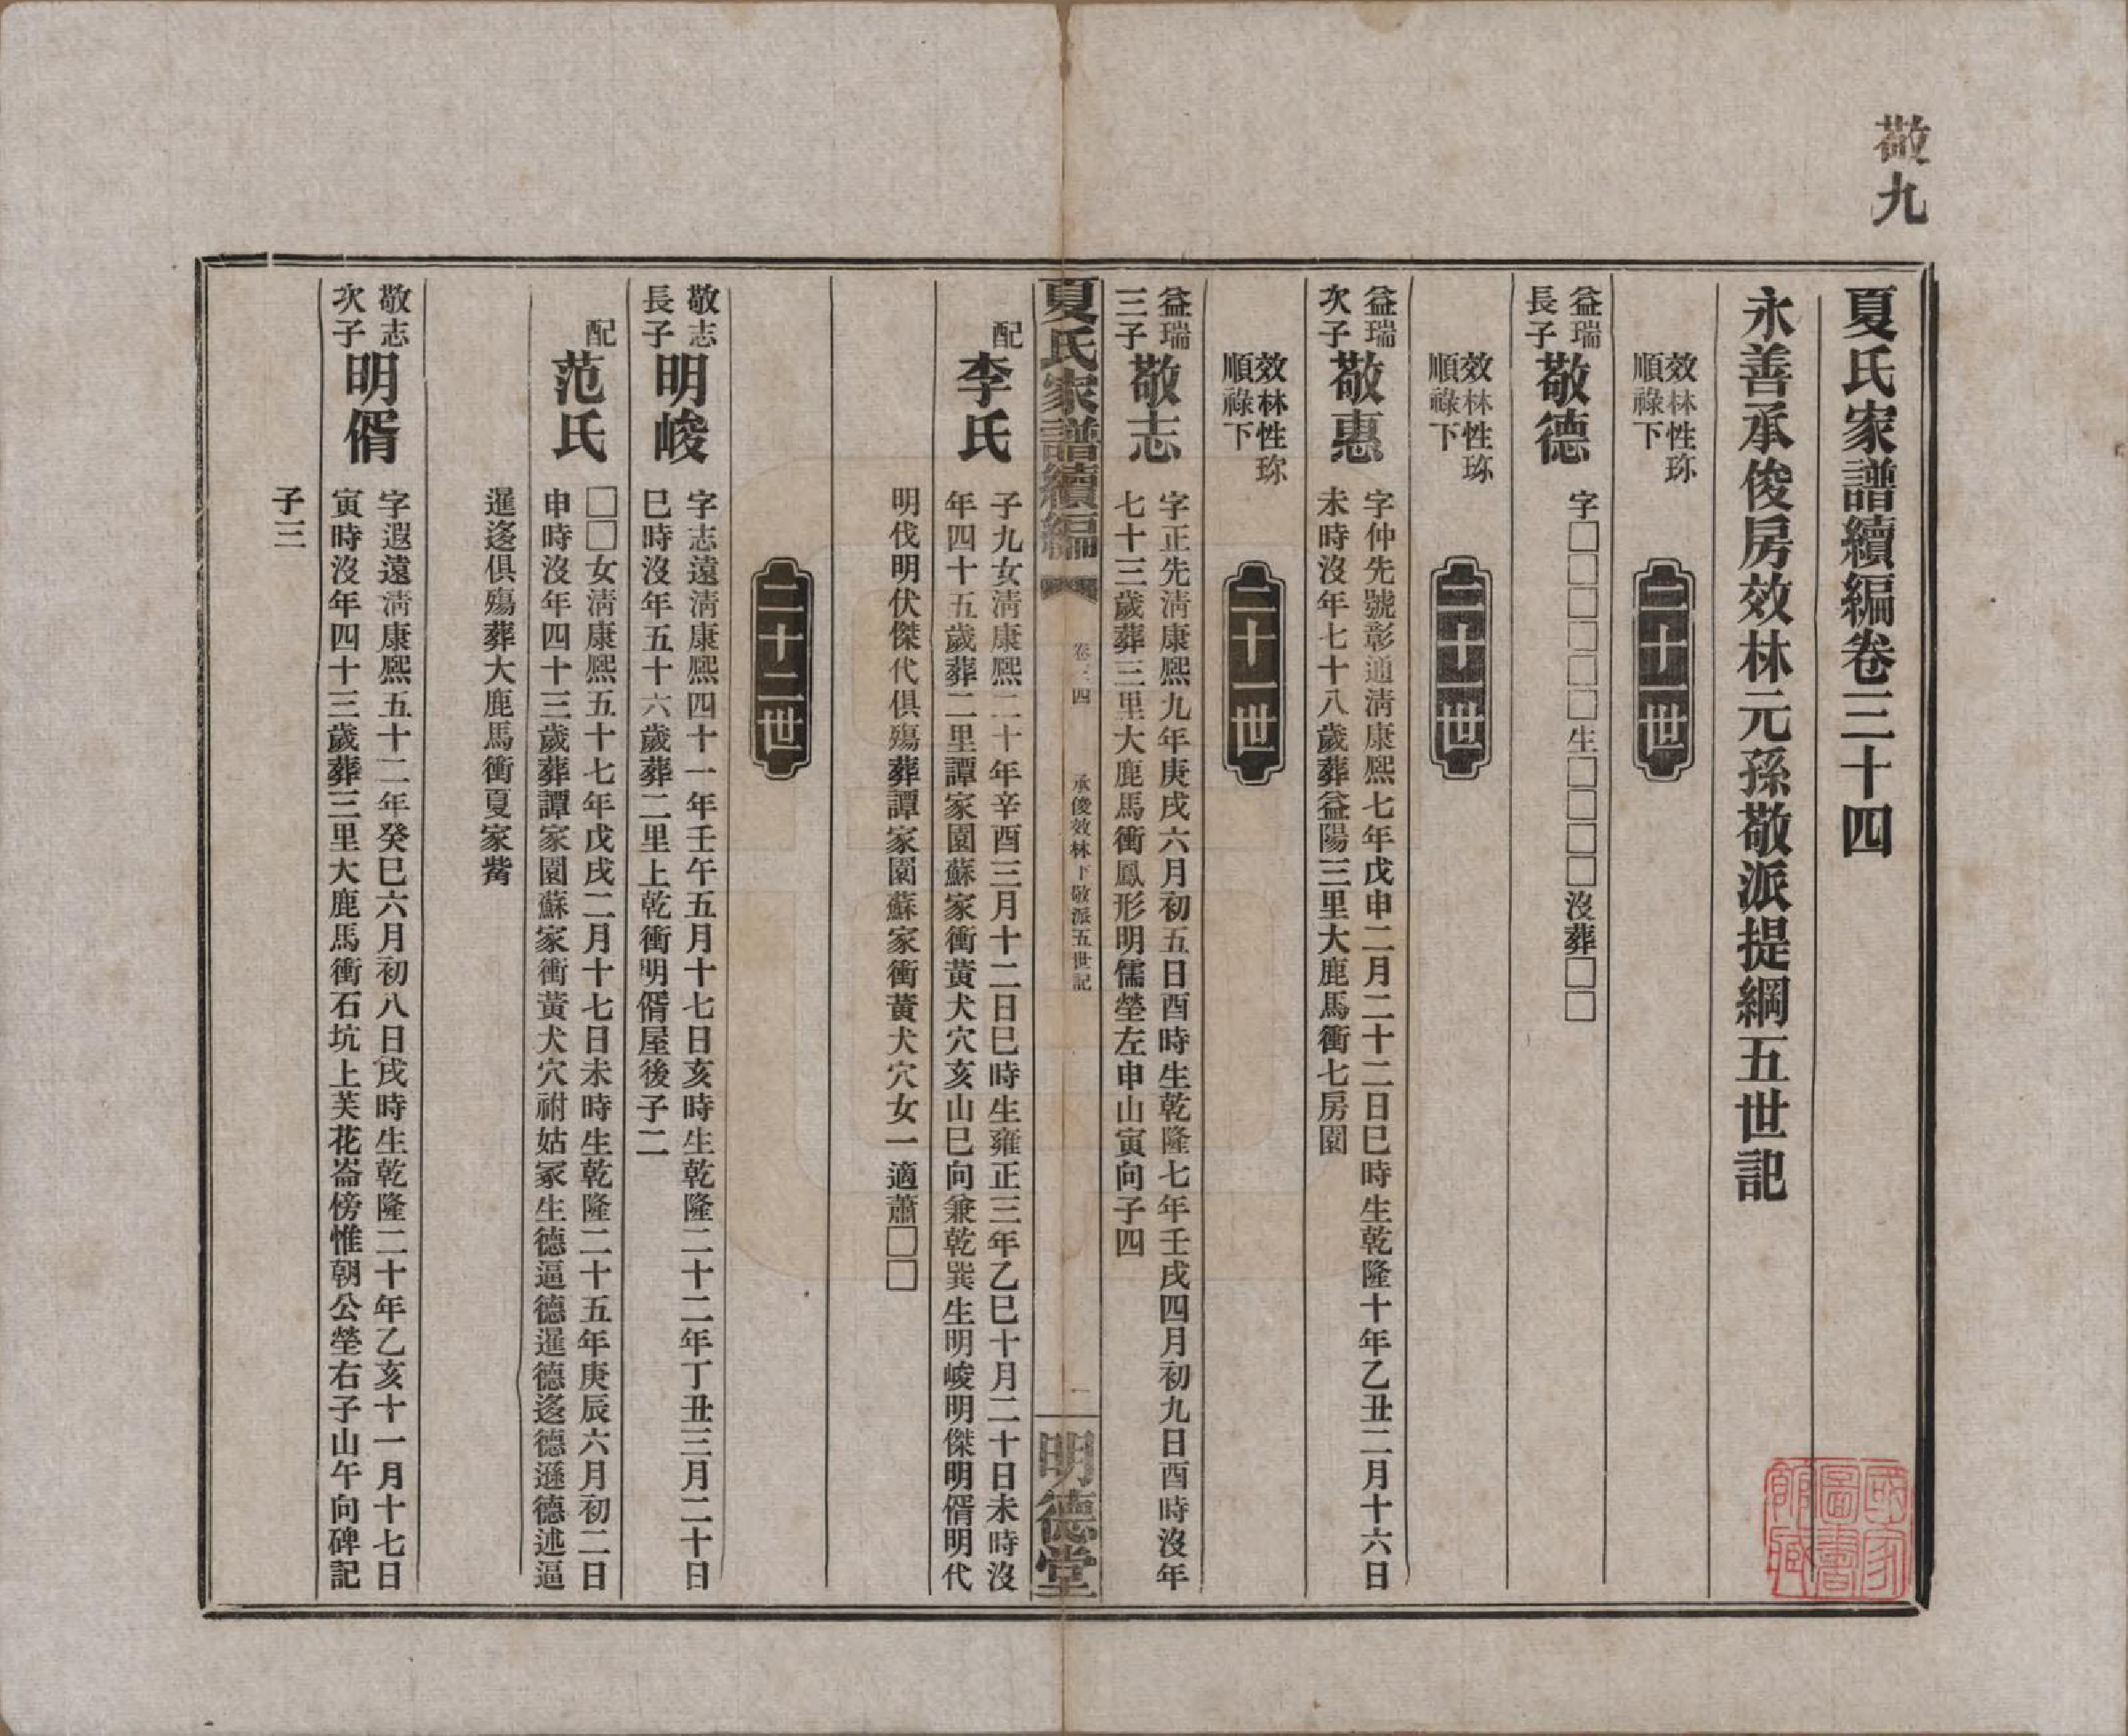 敬九
夏氏家譜續編卷三十四
永善承俊房效林元孫敬派提綱五世記
效林性珎
順祿下
二十一世
益瑞
長子
敬德
字□□□□□□生□□□□沒葬□□
效林性珎
順祿下
二十一世
益瑞
次子
敬惠
字仲先號彰通淸康熙七年戊申二月二十二日巳時生乾隆十年乙丑二月十六日
未時沒年七十八歲葬益陽三里大鹿馬衝七房園
效林性珎
順祿下
二十一世
益瑞
三子
敬志
字正先淸康熙九年庚戌六月初五日酉時生乾隆七年壬戌四月初九日酉時沒年
七十三歲葬三里大鹿馬衝鳳形明儒塋左申山寅向子四
夏氏家譜續編
卷三四
承俊效林下敬派五世記
一
明德堂
配
李氏
子九女淸康熙二十年辛酉三月十二日巳時生雍正三年乙巳十月二十日未時沒
年四十五歲葬二里譚家園蘇家衝黃犬穴亥山巳向兼乾巽生明峻明傑明偦明代
明伐明伏傑代俱殤葬譚家園蘇家衝黃犬穴女一適蕭□□
二十二世
敬志
長子
明峻
字志遠淸康熙四十一年壬午五月十七日亥時生乾隆二十二年丁丑三月二十日
巳時沒年五十六歲葬二里上乾衝明偦屋後子二
配
范氏
□□女淸康熙五十七年戊戌二月十七日未時生乾隆二十五年庚辰六月初二日
申時沒年四十三歲葬譚家園蘇家衝黃犬穴祔姑冢生德逼德暹德迻德遜德述逼
暹迻俱殤葬大鹿馬衝夏家觜
敬志
次子
明偦
字遐遠淸康熙五十二年癸巳六月初八日戌時生乾隆二十年乙亥十一月十七日
寅時沒年四十三歲葬三里大鹿馬衝石坑上芙花崙傍惟朝公塋右子山午向碑記
子三
國家
圖書
館藏